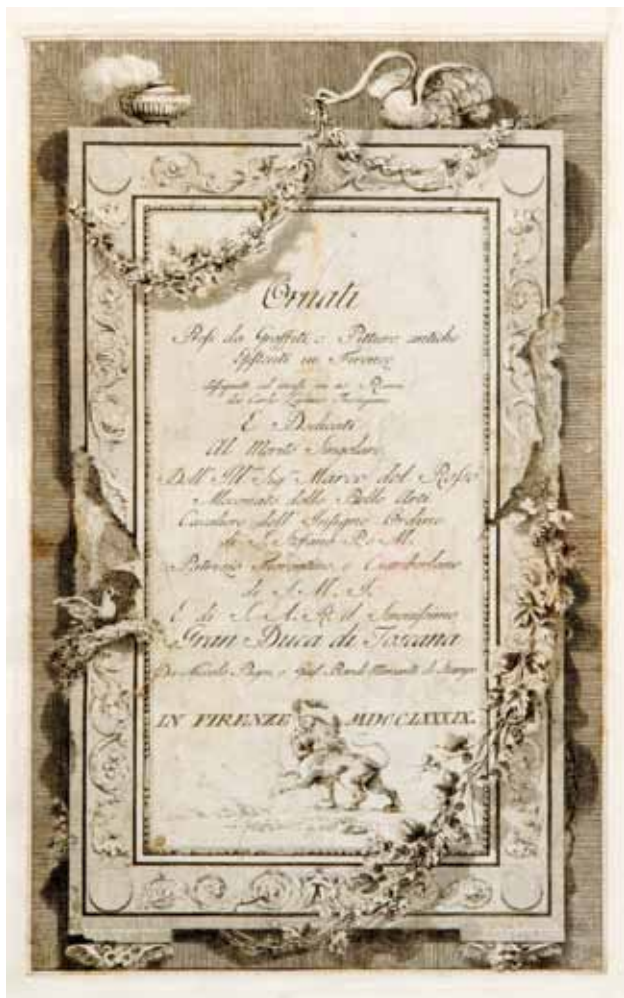 Ornati
Presi da Graffiti, e Pitture antiche
Esistenti in Firenze
disegnati ed incisi in
da Carlo
E Dedicati
Al Merito Singolare
Dell' Ill.mo Sig.r Marco del Rosso
Mecenate delle Belle Arti
Cavaliere dell' Insigne Ordine
di S. Stefano P. e M.
Patrizio Fiorentino, e Ciamberlano
di S. M. I.
E di S. A. R. il Serenissimo
Gran Duca di Toscana
Da Niccolò Pagni, e Gius. Bardi Mercanti di Stampe
IN FIRENZE MDCCLXXXIX.